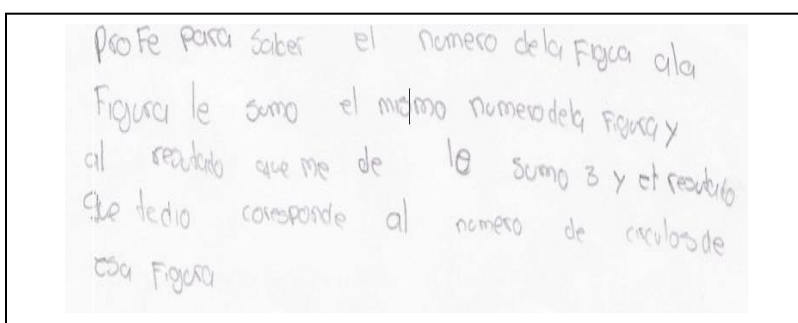 Profe para Saber el numero dela Figua ala
Figura le sumo el mismo numero dela Figura y
al resutado que me de le sumo 3 y el resutado
que tedio coresponde al numero de circulos de
esa Figura